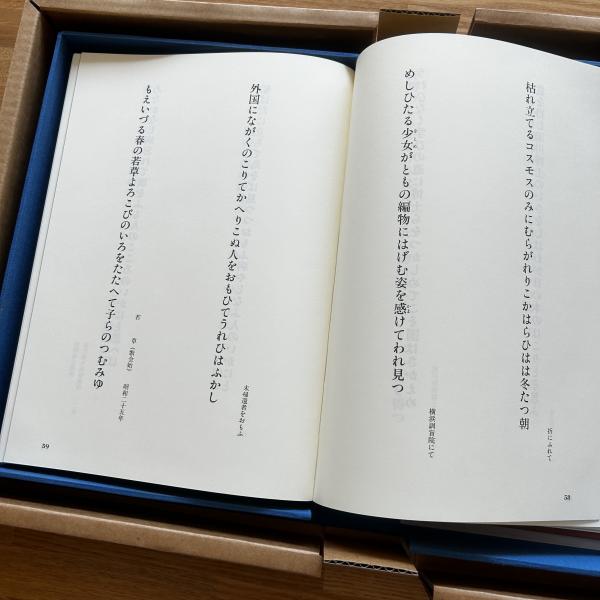 枯れ立てるコスモスのみにむらがれりこかはらひはは冬たつ朝
折にふれて
めしひたる少女がともの編物にはげむ姿を感けてわれ見つ
横浜訓盲院にて
58
外国にながくのこりてかへりこぬ人をおもひてうれひはふかし
未帰還者をおもふ
もえいづる春の若草よろこびのいろをたたへて子らのつむみゆ
若 草(歌会始) 昭和二十五年
59